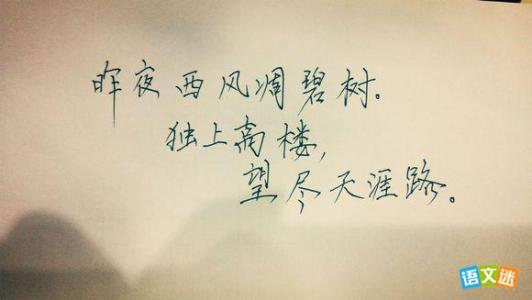 昨夜西风凋碧树。
独上高楼，
望尽天涯路。
语文迷